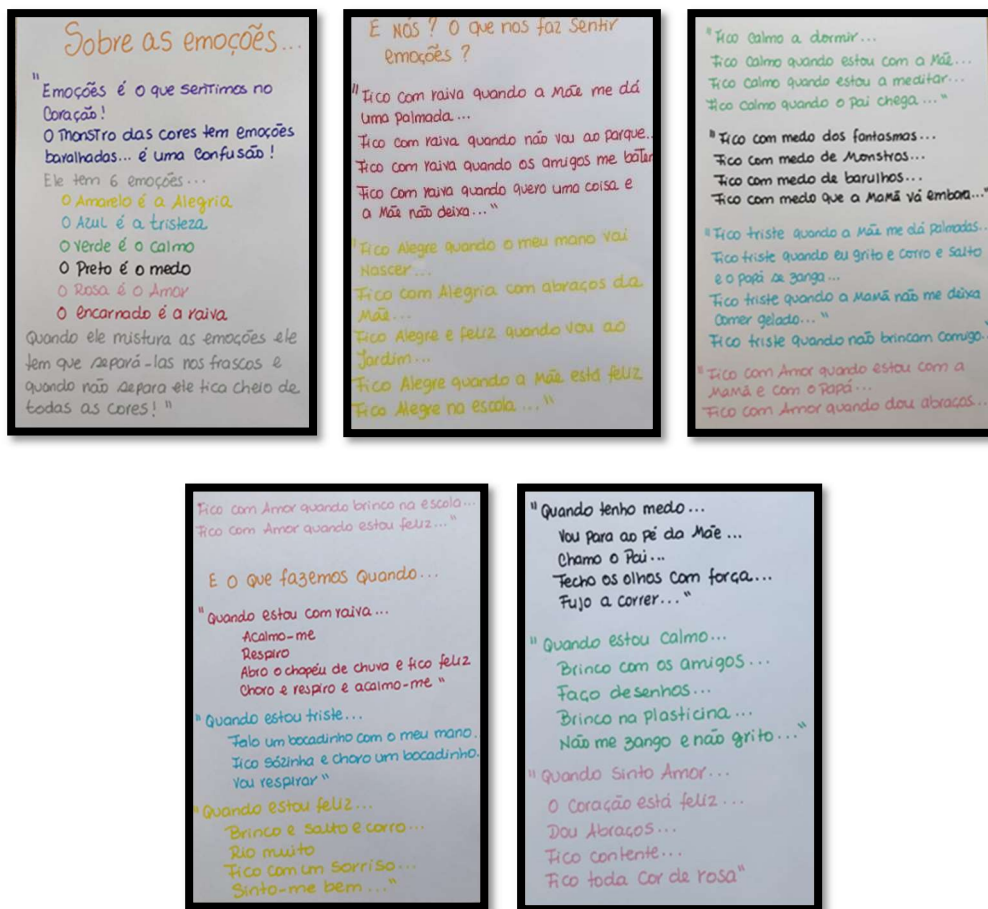 Sobre as emoções...
"Emoções é o que sentimos no
Coração!
O Monstro das cores tem emoções
baralhadas... é uma Confusão!
Ele tem 6 emoções...
O Amarelo é a Alegria
O Azul é a tristeza
O verde é o calmo
O Preto é o medo
O Rosa é o Amor
O encarnado é a raiva
Quando ele mistura as emoções ele
tem que separá-las nos frascos e
quando não separa ele fica cheio de
todas as cores!"
E NÓS? O que nos faz sentir
emoções?
"Fico com raiva quando a Mãe me dá
uma palmada...
Fico com raiva quando não vou ao parque...
Fico com raiva quando os amigos me batem
Fico com raiva quando quero uma coisa e
a Mãe não deixa..."
"Fico Alegre quando o meu mano vai
Nascer...
Fico com Alegria com abraços da
Mãe...
Fico Alegre e feliz quando vou ao
Jardim...
Fico Alegre quando a Mãe está feliz
Fico Alegre na escola..."
"Fico Calmo a dormir...
Fico Calmo quando estou com a Mãe...
Fico calmo quando estou a meditar...
Fico calmo quando o Pai chega..."
"Fico com medo dos fantasmas...
Fico com medo de Monstros...
Fico com medo de barulhos...
Fico com medo que a Mamã vá embora..."
"Fico triste quando a Mãe me dá palmadas...
Fico triste quando eu grito e corro e salto
e o papá se zanga...
Fico triste quando a Mamã não me deixa
Comer gelado..."
Fico triste quando não brincam comigo.
"Fico com Amor quando estou com a
Mamã e com o Papá...
Fico com Amor quando dou abraços...
Fico com Amor quando brinco na escola...
Fico com Amor quando estou feliz..."
E O que fazemos Quando...
"Quando estou com raiva...
Acalmo-me
Respiro
Abro o chapéu de chuva e fico feliz
Choro e respiro e acalmo-me"
"Quando estou triste...
Falo um bocadinho com o meu mano.
Fico sózinha e choro um bocadinho.
Vou respirar"
"Quando estou feliz...
Brinco e salto e corro...
Rio muito
Fico com um sorriso...
Sinto-me bem..."
"Quando tenho medo...
Vou Para ao pé da Mãe...
Chamo o Pai...
Fecho os olhos com força...
Fujo a correr..."
"Quando estou calmo...
Brinco com os amigos...
Faço desenhos...
Brinco na Plasticina...
Não me zango e não grito..."
"Quando sinto Amor...
O Coração está feliz...
Dou Abraços...
Fico contente...
Fico toda Cor de rosa"